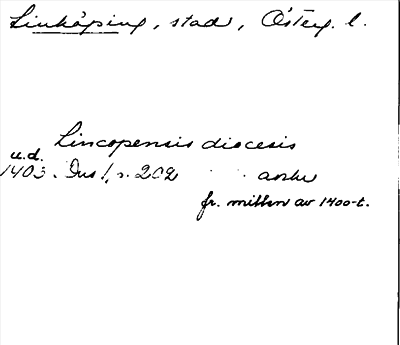 Linköping, stad, Österg. l.
Lincopensis diocesis
u.d.
1403. Dus 1, s. 202 avskr
fr. mitten av 1400-t.